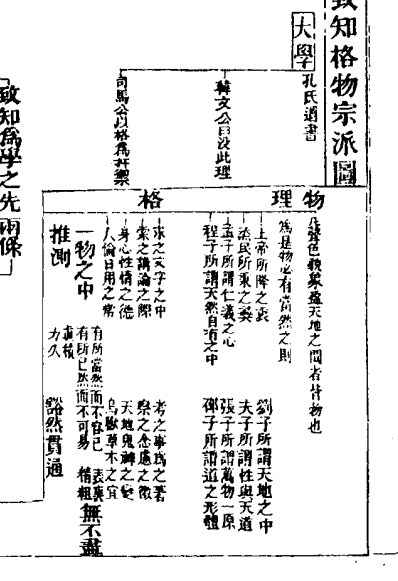 致知格物宗派圖
大學
孔氏遺書
韓文公自没此理
司馬公以格為扞禦
物理
格
凡聲色貌象盈天地之間者皆物也
為是物必有當然之則
上帝所降之衷
烝民所秉之彝
孟子所謂仁義之心
程子所謂天然自有之中
劉子所謂天地之中
夫子所謂性與天道
張子所謂萬物一原
邵子所謂道之形體
求之文字之中
索之講論之際
身心性情之德
人倫日用之常
考之事為之著
察之念慮之微
天地鬼神之變
鳥獸草木之宜
一物之中
有所當然而不容已
有所已然而不可易
表裏
精粗
無不盡
推測
真積
力久
豁然貫通
致知為學之先兩條